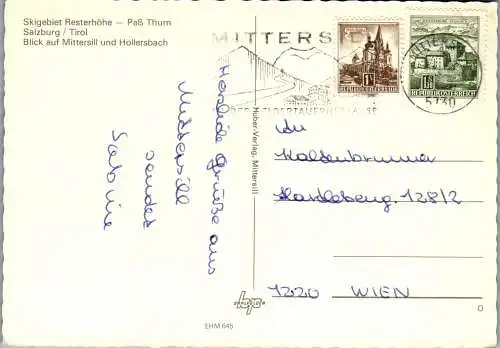 Skigebiet Resterhöhe — Paß Thurn
Salzburg / Tirol
Blick auf Mittersill und Hollersbach
Herzliche Grüße aus
Mittersill
sendet
Sabine
Huber-Verlag, Mittersill
EHM 645
MITTERSILL
5730
REPUBLIK ÖSTERREICH
REPUBLIK ÖSTERREICH
Kaltenbrunner
128/2
1220 WIEN